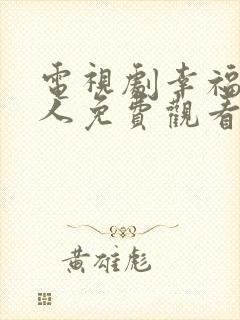 電視劇幸福
人免費觀看
黃雄彪